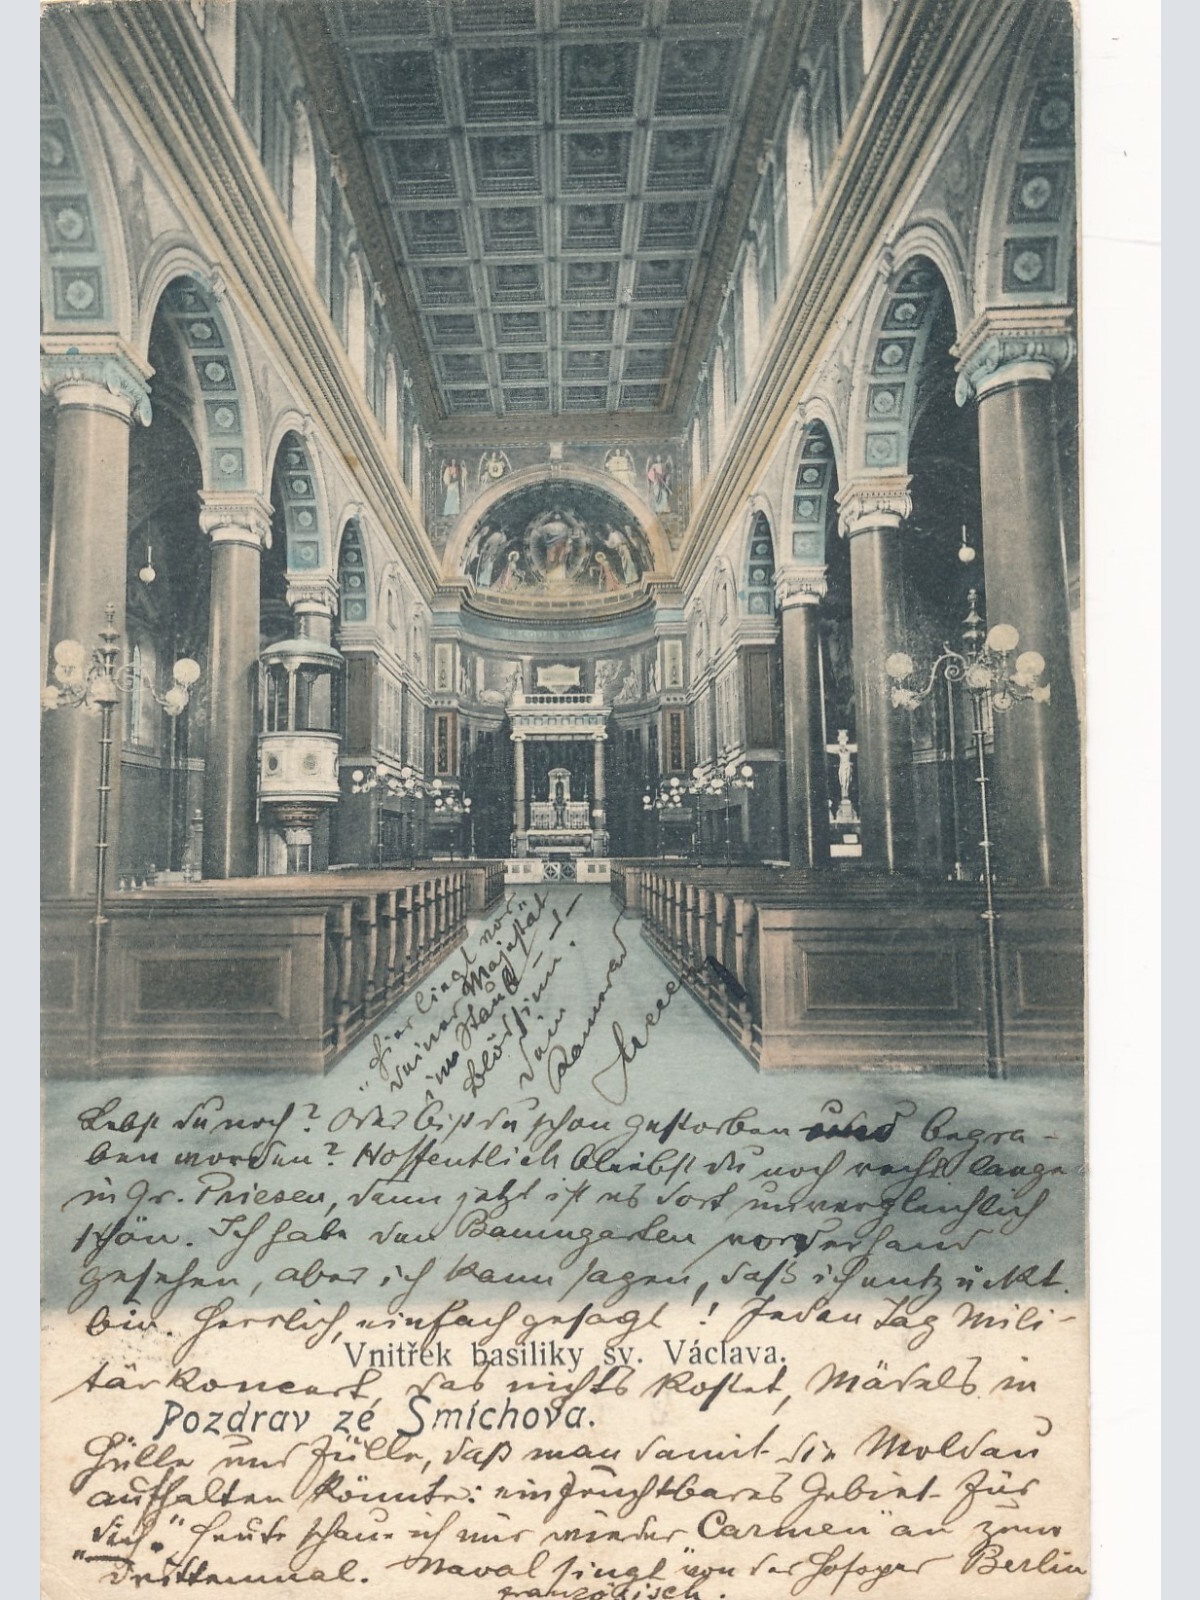 „Hier liegt vor
deiner Majestät
im Staub
blödsinn.
dein
Kamerad
Lebst du noch? Oder bist du schon gestorben und begra-
ben worden? Hoffentlich bleibst du noch recht lange
in Gr. Priesen, denn jetzt ist es dort unvergleichlich
schön. Ich habe den Baumgarten vorderhand
gesehen, aber ich kann sagen, daß ich entzückt
bin. Herrlich, einfach gesagt! Jeden Tag Mili-
Vnitřek basiliky sv. Václava.
tärkoncert, das nichts kostet, Mädels in
Pozdrav ze Smíchova.
Hülle und Fülle, daß man damit die Moldau
aufhalten könnte: ein fruchtbares Gebiet für
„dich." Heute schaue ich mir wieder „Carmen" an zum
drittenmal. Naval singt von der Hofoper Berlin
französisch.